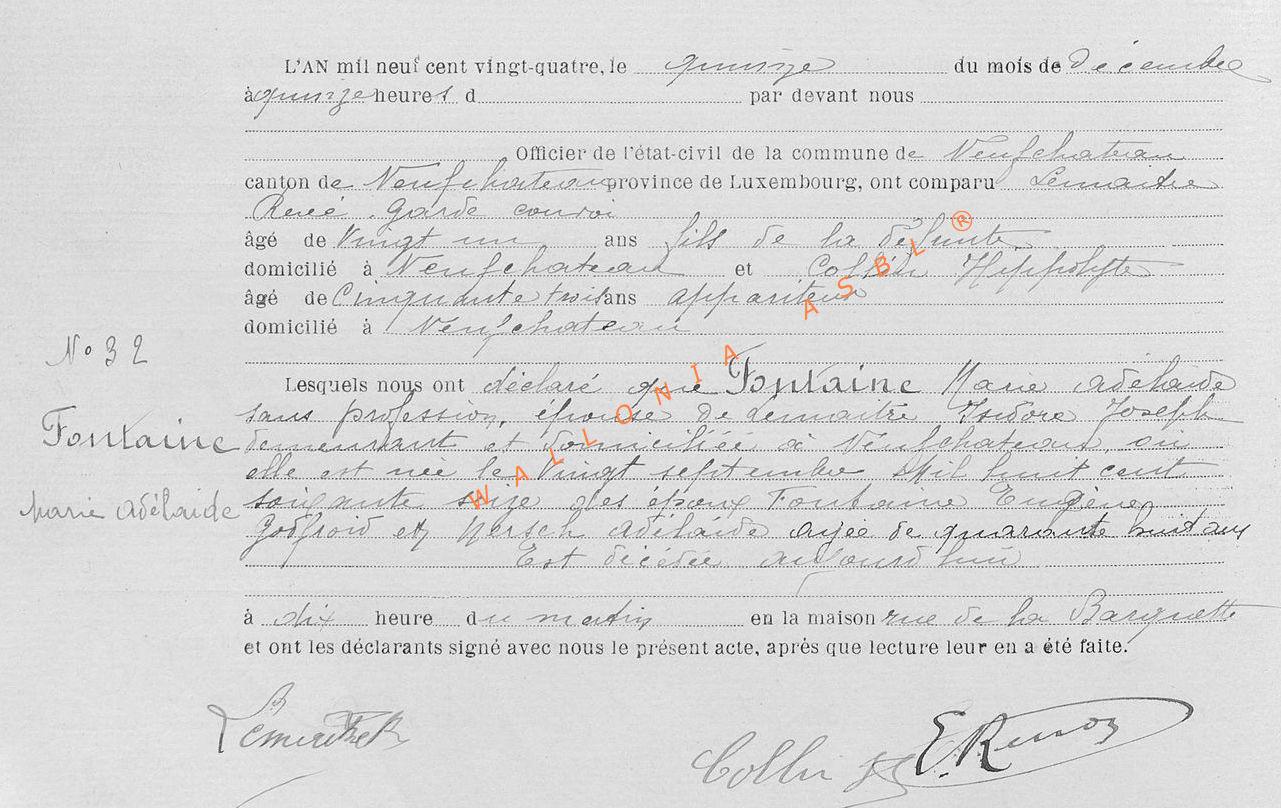 L'AN mil neuf cent vingt-quatre, le quinze du mois de décembre
à quinze heures d par devant nous
Officier de l'état-civil de la commune de Neufchateau
canton de Neufchateau province de Luxembourg, ont comparu Lemaitre
René Garde convoi
âgé de Vingt un ans fils de la défunte
domicilié à Neufchateau et Collin Hippolyte
âgé de Cinquante trois ans appariteur
domicilié à Neufchateau
No 32
Lesquels nous ont déclaré que Fontaine Marie Adélaide
sans profession, épouse de Lemaitre Isidore Joseph
Fontaine
demeurant et domiciliée à Neufchateau, où
elle est née le Vingt septembre Mil huit cent
soixante seize des époux Fontaine Eugène
Marie Adélaide
Godfroid et Hersch Adélaide agée de quarante huit ans
Est décédée aujourd'hui
à dix heure du matin en la maison rue de la Barquette
et ont les déclarants signé avec nous le présent acte, après que lecture leur en a été faite.
WALLONIA ASBL ®
Collin